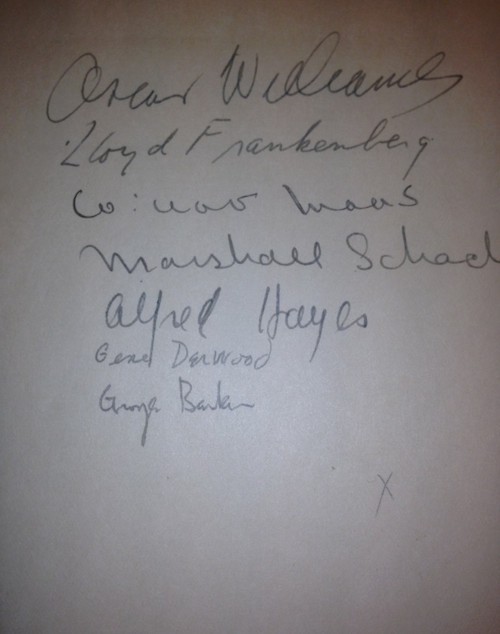 Oscar Williams
Lloyd Frankenberg
Maas
Marshall Schac
Alfred Hayes
Gene Derwood
George Barker
X